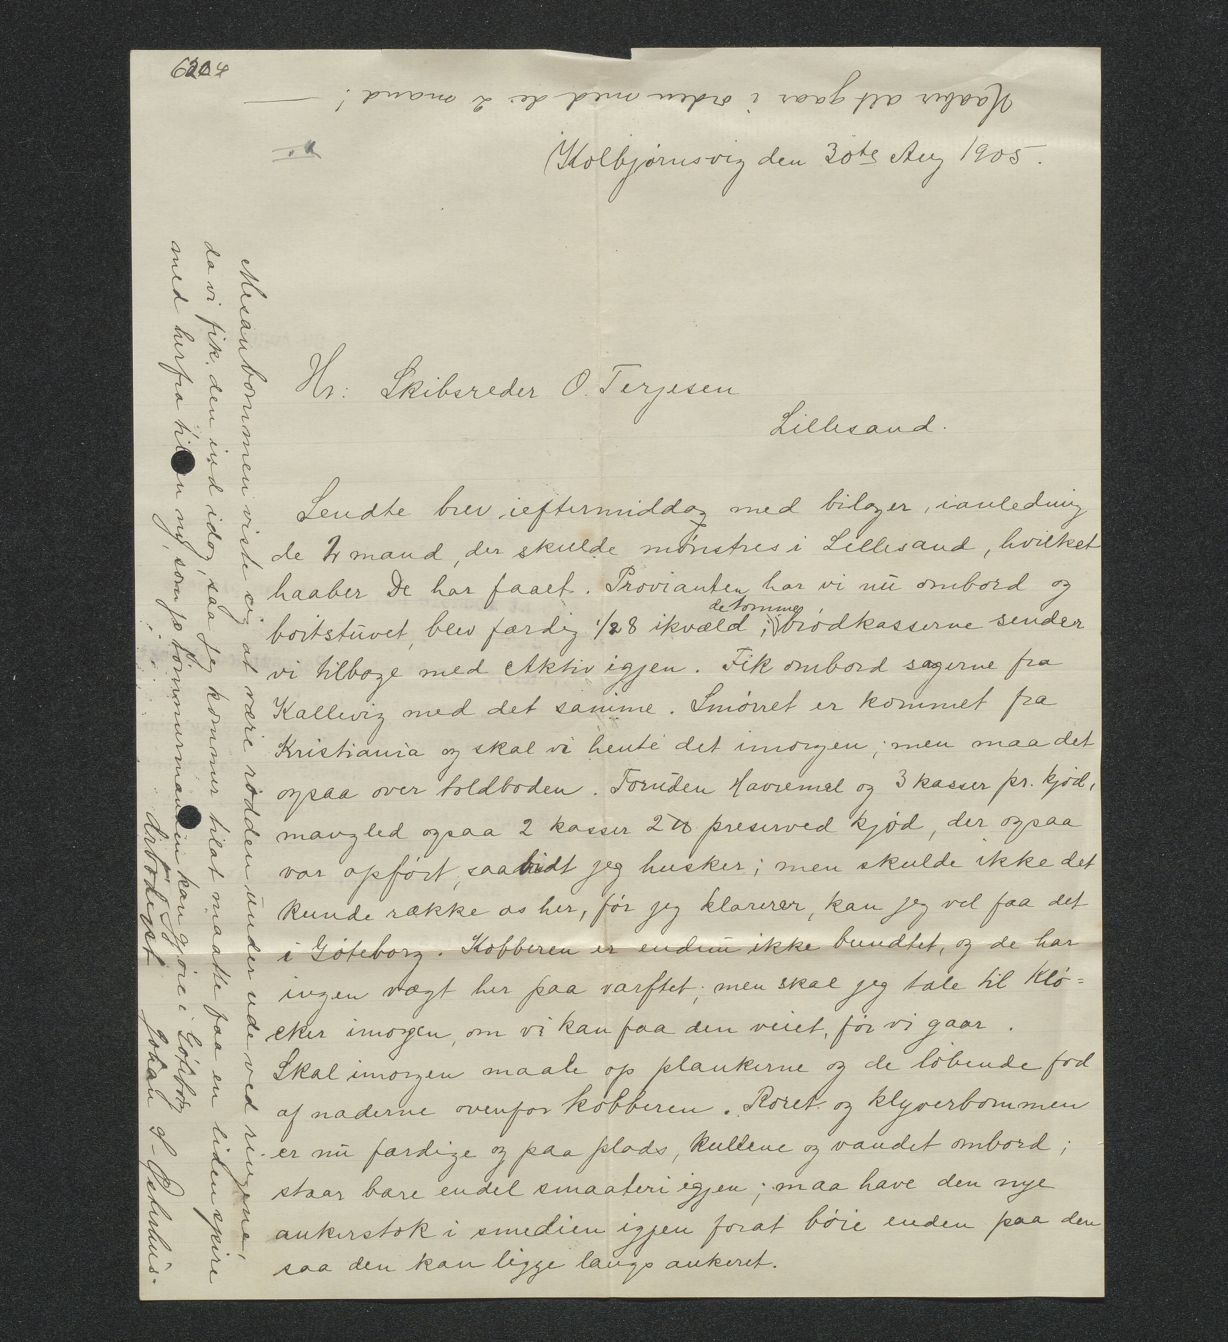 Haaber alt gaar i orden med de 2 mand!
Kolbjørnsvig den 30te Aug 1905.
Hr: Skibsreder O. Terjesen
Lillesand.
Sendte brev ieftermiddag med bilager, ianledning
de 2 mand, der skulde mønstres i Lillesand, hvilket
haaber De har faaet. Provianten har vi nu ombord og
bortstuvet, blev færdig 1/2 8 ikvæld; de tomme brødkasserne sender
vi tilbage med Aktiv igjen. Fik ombord sagerne fra
Kallevig med det samme. Smørret er kommet fra
Kristiania og skal vi hente det imorgen; men maa det
ogsaa over toldboden. Foruden Havremel og 3 kasser pr. kjød,
mangled ogsaa 2 kasser 2 ℔ preserved kjød, der ogsaa
var opført, saavidt jeg husker; men skulde ikke det
kunde række os her, før jeg klarerer, kan jeg vel faa det
i Göteborg. Kobberen er endnu ikke bundtet, og de har
ingen vægt her paa varftet; men skal jeg tale til Klö=
cker imorgen, om vi kan faa den veiet, før vi gaar.
Skal imorgen maale op plankerne og de løbende fod
af naderne ovenfor kobberen. Roret og klyverbommen
er nu færdige og paa plads, kullene og vandet ombord;
staar bare endel smaateri igjen; maa have den nye
ankerstok i smedien igjen forat bøie enden paa den
saa den kan ligge langs ankeret.
Mesanbommen viste sig at være rødden under ude ved ringene,
da vi fik den ind idag, saa jeg kommer tilat maatte faa en liden spire
med herfra til en ny, som jo tømmermanden kan gjøre i Göteborg
Ærbødigst Johan S-Pehrhus.